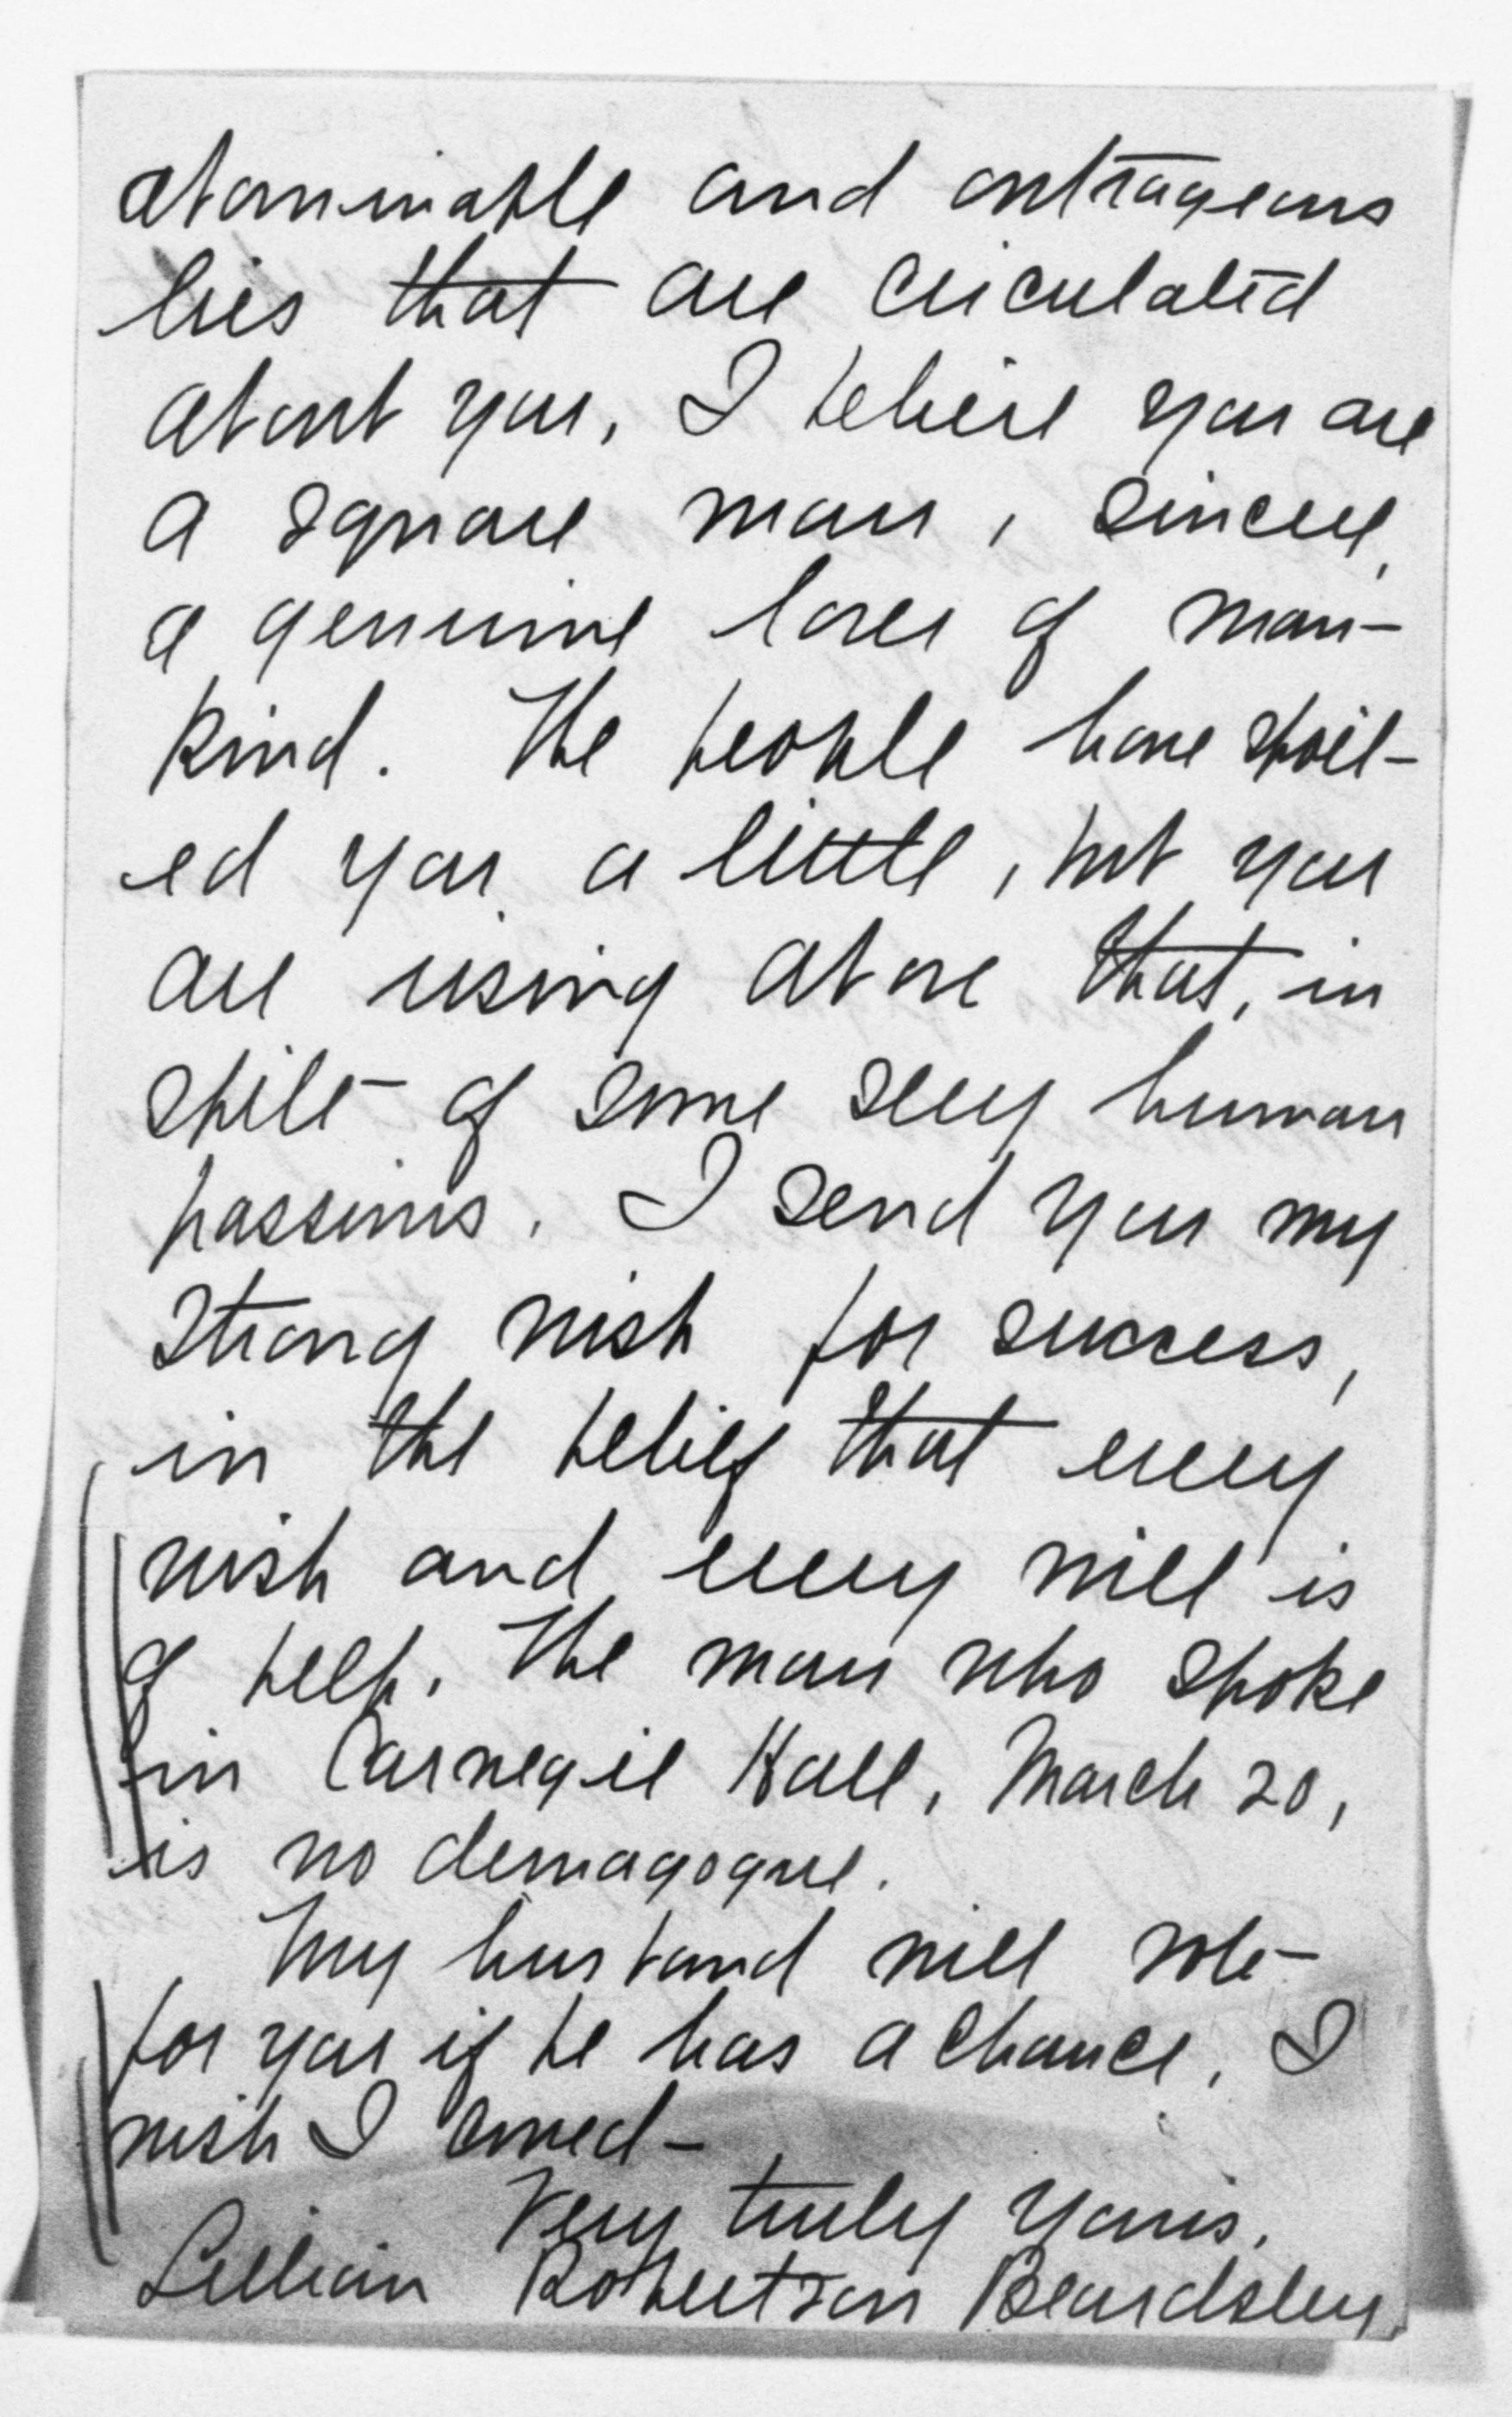 abominable and outrageous
lies that are circulated
about you. I believe you are
a square man, sincere,
a genuine lover of man-
kind. The people have spoil-
ed you a little, but you
are rising above that, in
spite of some very human
passions. I send you my
strong wish for success,
in the belief that every
wish and every will is
of help. The man who spoke
in Carnegie Hall, March 20,
is no demagogue.
My husband will vote
for you if he has a chance. I
wish I could -
Very truly yours,
Lillian Robertson Beardsley.